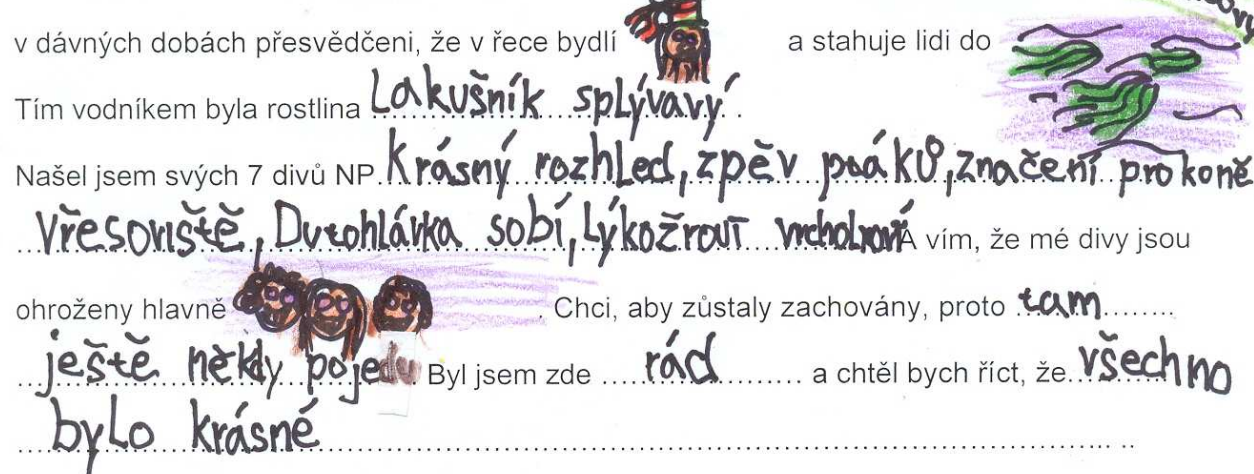 v dávných dobách přesvědčeni, že v řece bydlí a stahuje lidi do
Tím vodníkem byla rostlina Lakušník splývavý.
Našel jsem svých 7 divů NP Krásný rozhled, zpěv ptáků, značení pro koně
Vřesoviště, Dutohlávka sobí, Lýkožrout vrcholový A vím, že mé divy jsou
ohroženy hlavně . Chci, aby zůstaly zachovány, proto tam
ještě někdy pojedu Byl jsem zde rád a chtěl bych říct, že všechno
bylo krásné